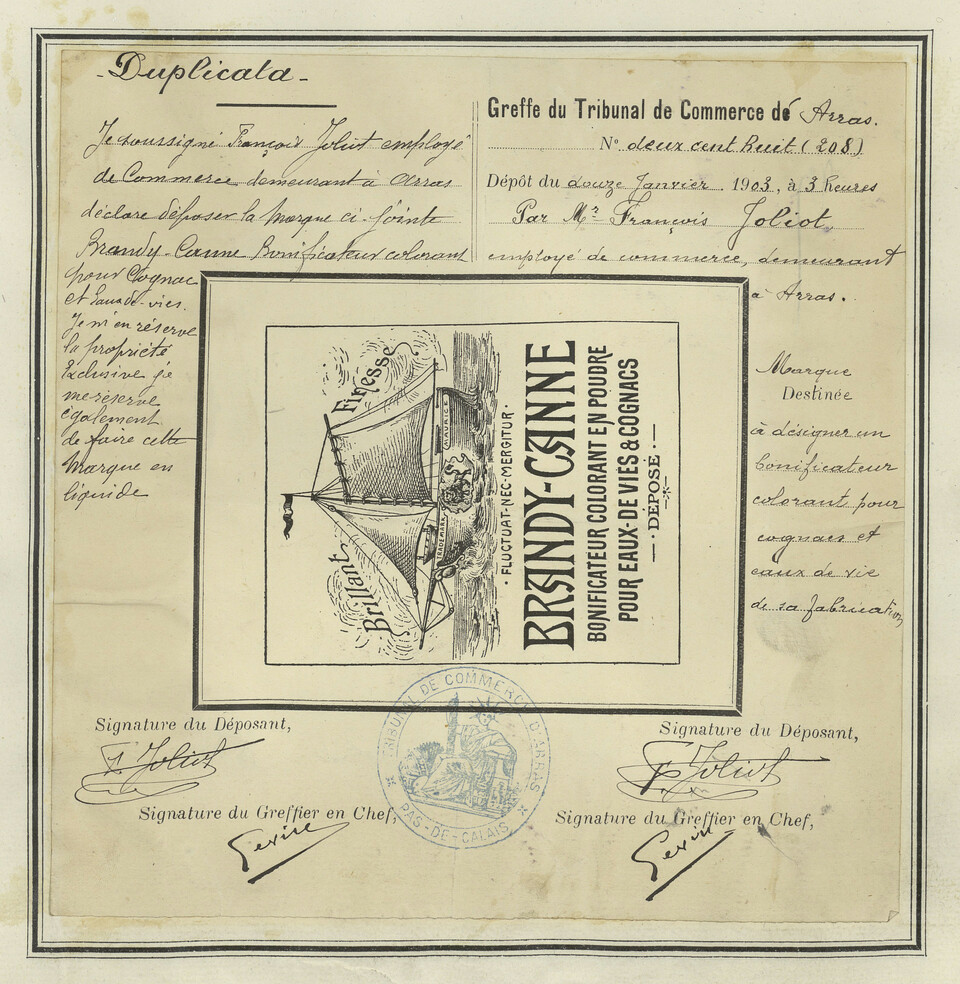 - Duplicata -
Je soussigné François Joliot employé
de Commerce demeurant à Arras
déclare déposer la marque ci-jointe
Brandy-Canne Bonificateur colorant
pour Cognac
et Eaux-de-vies.
Je m'en réserve
la propriété
Exclusive je
me réserve
également
de faire cette
Marque en
liquide
Greffe du Tribunal de Commerce de Arras.
N° deux cent huit (208)
Dépôt du douze Janvier 1903, à 3 heures
Par Mr François Joliot,
employé de commerce, demeurant
à Arras.
Marque
Destinée
à désigner un
bonificateur
colorant pour
cognacs et
eaux de vie
de sa fabrication
Brillant Finesse
TRADEMARK MAURICE
· FLUCTUAT-NEC-MERGITUR ·
BRANDY-CANNE
BONIFICATEUR COLORANT EN POUDRE
POUR EAUX-DE VIES & COGNACS
— · DÉPOSÉ · —
TRIBUNAL DE COMMERCE D'ARRAS
PAS-DE-CALAIS
Signature du Déposant,
F. Joliot
Signature du Greffier en Chef,
Signature du Déposant,
F. Joliot
Signature du Greffier en Chef,